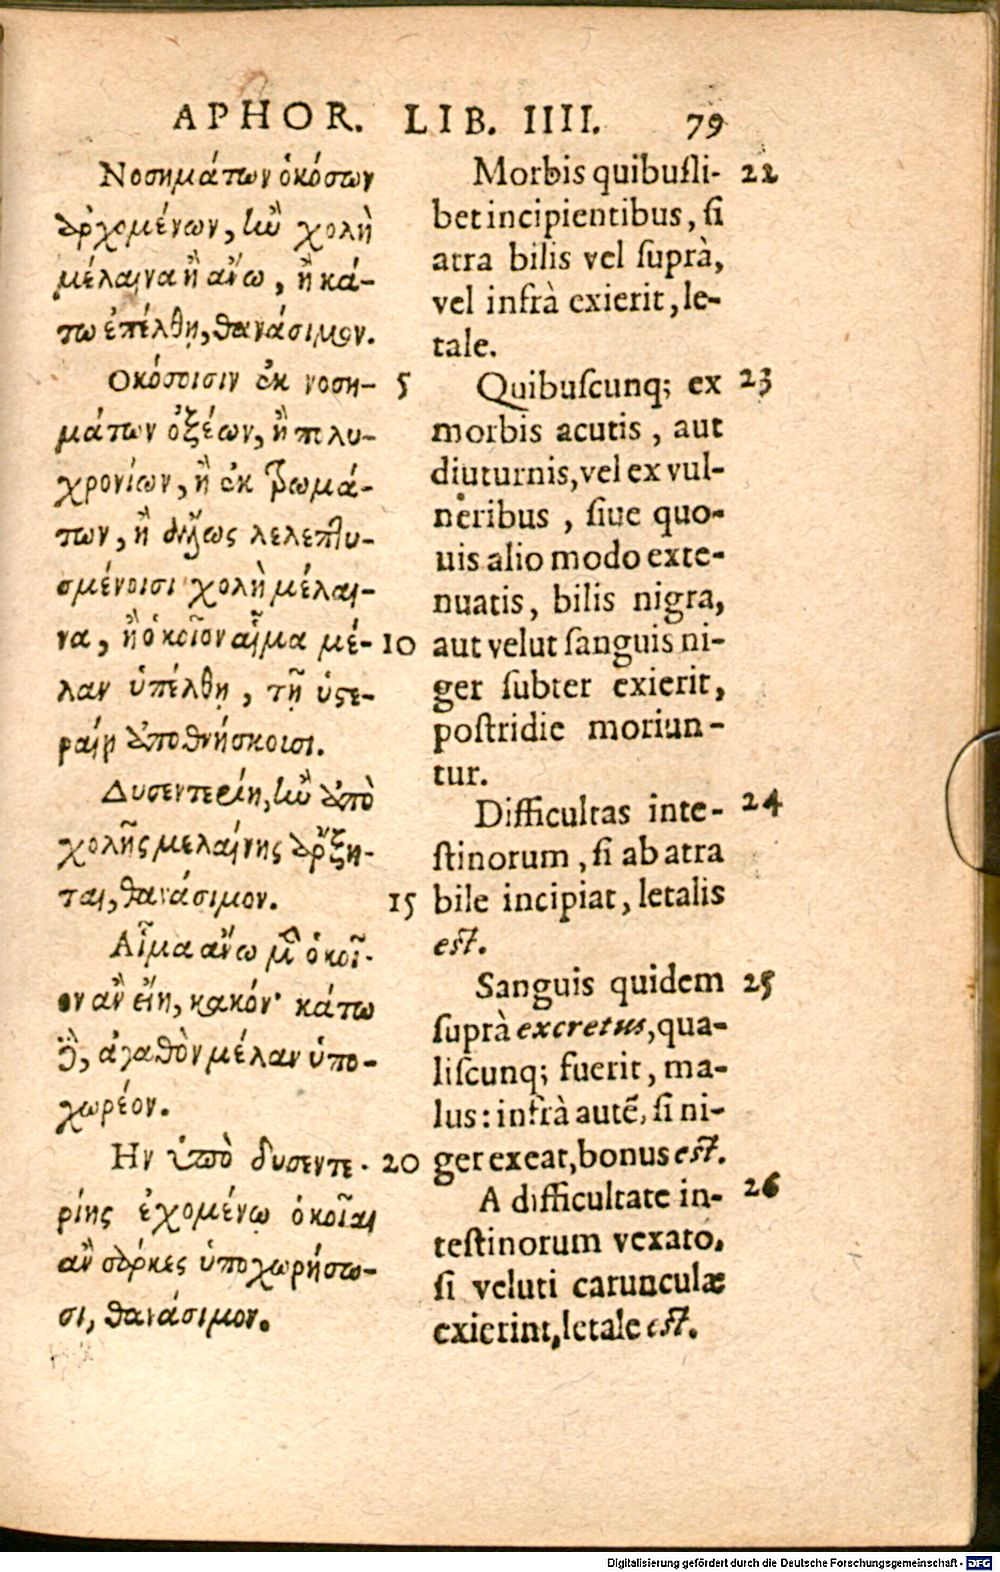 APHOR. LIB. IIII. 79
Νοσημάτων ὁκόσων
ἀρχομένων, ἢν χολὴ
μέλαινα ἢ ἄνω, ἢ κά-
τω ἐπέλθῃ, θανάσιμον.
Οκόσοισιν ἐκ νοση- 5
μάτων ὀξέων, ἢ πολυ-
χρονίων, ἢ ἐκ τρωμά-
των, ἢ ἄλλως λελεπτυ-
σμένοισι χολὴ μέλαι-
να, ἢ ὁκοῖον αἷμα μέ- 10
λαν ὑπέλθῃ, τῇ ὑστε-
ραίῃ ἀποθνήσκουσι.
Δυσεντερίη, ἢν ἀπὸ
χολῆς μελαίνης ἄρξη-
ται, θανάσιμον. 15
Αἷμα ἄνω μὲν ὁκοῖ-
ον ἂν εἴη, κακόν· κάτω
δὲ, ἀγαθὸν μέλαν ὑπο-
χωρέον.
Ην ὑπὸ δυσεντε- 20
ρίης ἐχομένῳ ὁκοῖαι
ἂν σάρκες ὑποχωρήσω-
σι, θανάσιμον.
Morbis quibusli- 22
bet incipientibus, si
atra bilis vel suprà,
vel infrà exierit, le-
tale.
Quibuscunq; ex 23
morbis acutis, aut
diuturnis, vel ex vul-
neribus, siue quo-
uis alio modo exte-
nuatis, bilis nigra,
aut velut sanguis ni-
ger subter exierit,
postridie moriun-
tur.
Difficultas inte- 24
stinorum, si ab atra
bile incipiat, letalis
est.
Sanguis quidem 25
suprà excretus, qua-
liscunq; fuerit, ma-
lus: infrà autẽ, si ni-
ger exeat, bonus est.
A difficultate in- 26
testinorum vexato,
si veluti carunculæ
exierint, letale est.
Digitalisierung gefördert durch die Deutsche Forschungsgemeinschaft - DFG